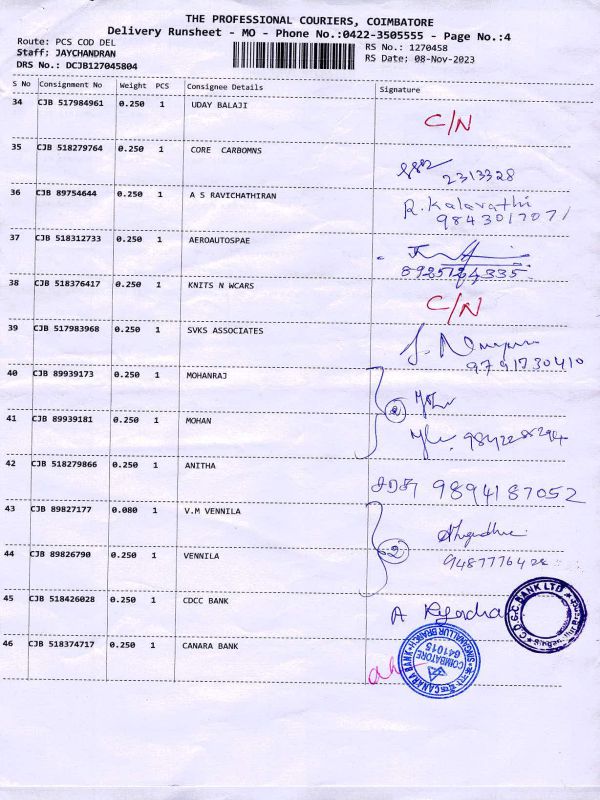 THE PROFESSIONAL COURIERS, COIMBATORE
Delivery Runsheet - MO - Phone No.:0422-3505555 - Page No.:4
Route: PCS COD DEL
RS No.: 1270458
Staff: JAYCHANDRAN
RS Date: 08-Nov-2023
DRS No.: DCJB127045804
S No Consignment No Weight PCS Consignee Details Signature
34 CJB 517984961 0.250 1 UDAY BALAJI C/N
35 CJB 518279764 0.250 1 CORE CARBOMNS
2313328
36 CJB 89754644 0.250 1 A S RAVICHATHIRAN R. Kalavathi
9843017071
37 CJB 518312733 0.250 1 AEROAUTOSPAE
38 CJB 518376417 0.250 1 KNITS N WCARS C/N
39 CJB 517983968 0.250 1 SVKS ASSOCIATES
9791730410
40 CJB 89939173 0.250 1 MOHANRAJ
41 CJB 89939181 0.250 1 MOHAN
42 CJB 518279866 0.250 1 ANITHA 9894187052
43 CJB 89827177 0.080 1 V.M VENNILA
2
44 CJB 89826790 0.250 1 VENNILA
45 CJB 518426028 0.250 1 CDCC BANK A
46 CJB 518374717 0.250 1 CANARA BANK
CANARA BANK
SINGANALLUR BRANCH
COIMBATORE
641015